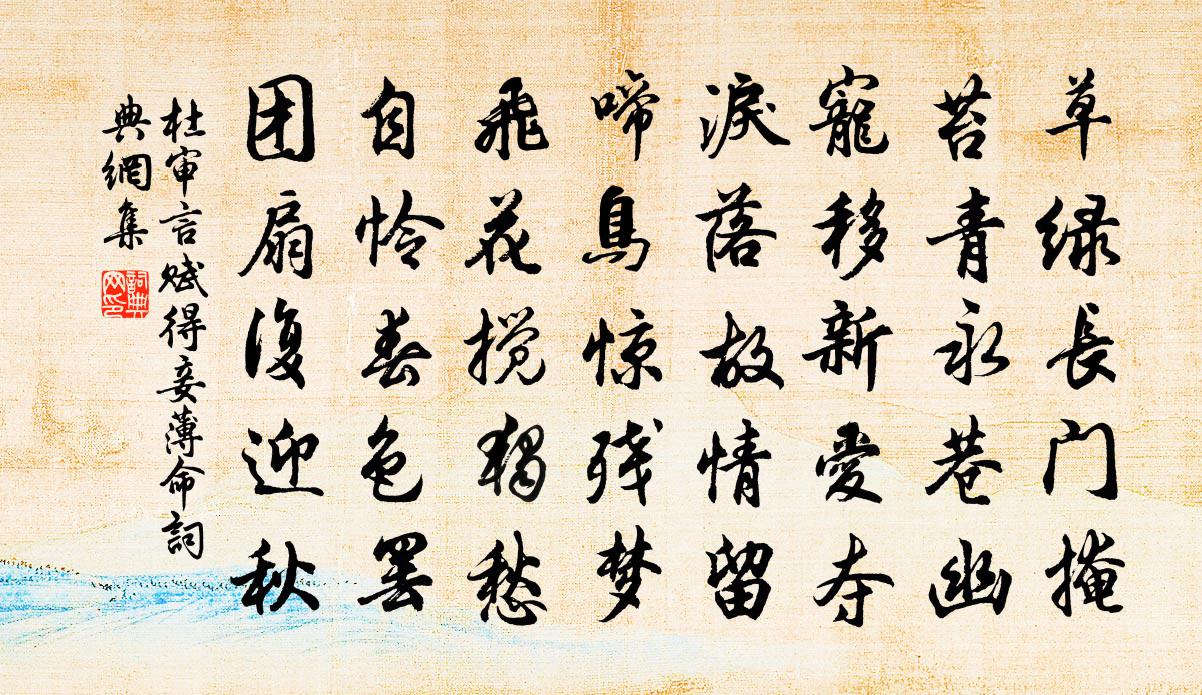 草绿长门掩
苔青永巷幽
寵移新愛夺
淚落故情留
啼鳥惊残梦
飛花搅獨愁
自怜春色罢
团扇復迎秋
杜审言赋得妾薄命詞
典網集
詞典網印